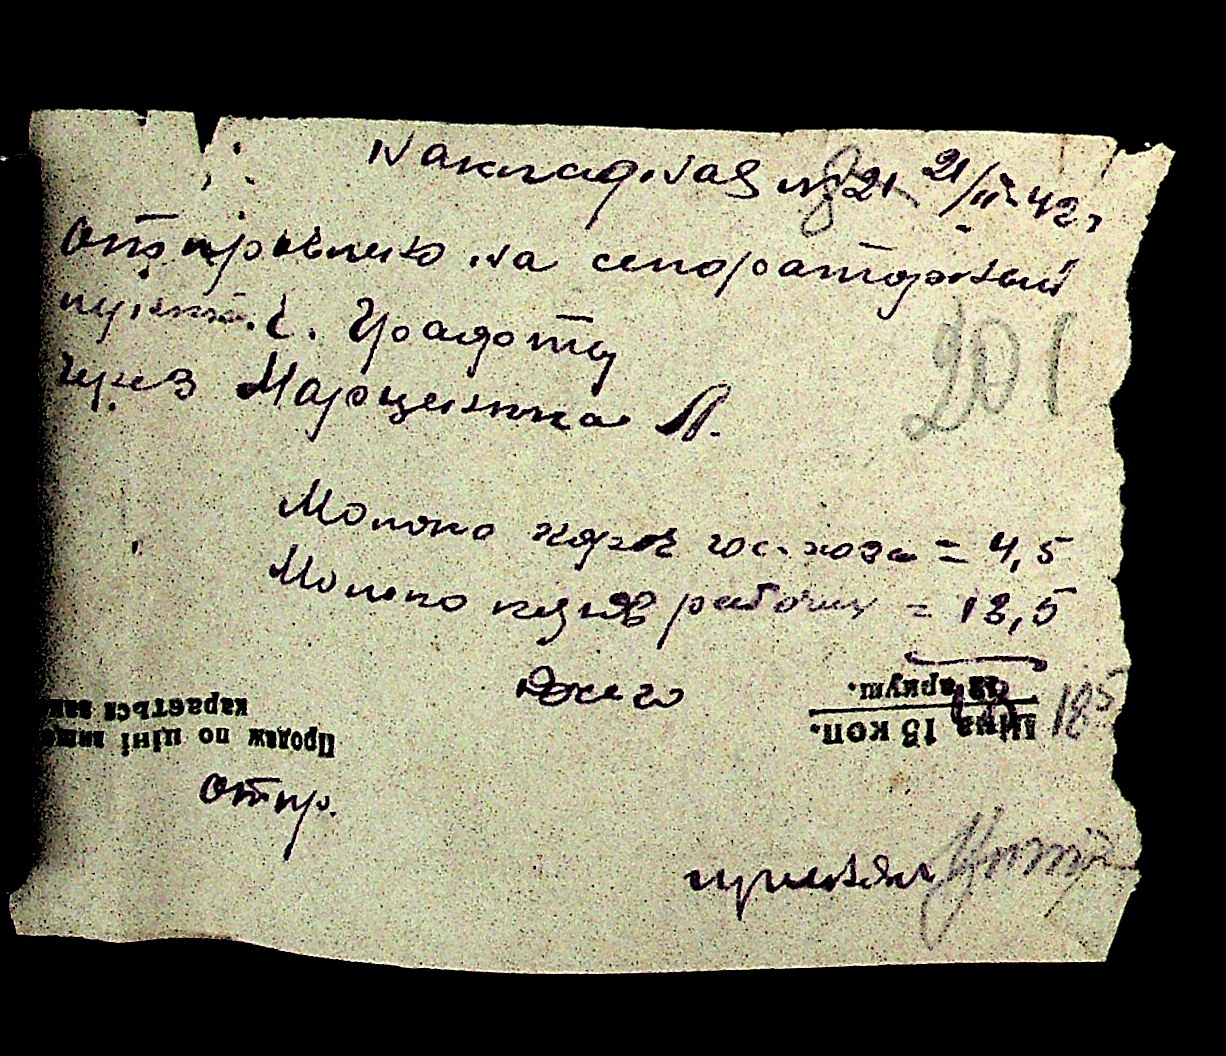 Накладная № 21 21/II-42 г
Отправлено на сепораторный
пункт с.
через Марценюка Л.
201
Молоко коров гос. хоз. = 4,5
Молоко коров рабочих = 13,5
18⁵
Ціна 15 коп.
за аркуш.
Продаж по ціні вище
карається зак
Отпр.
принял